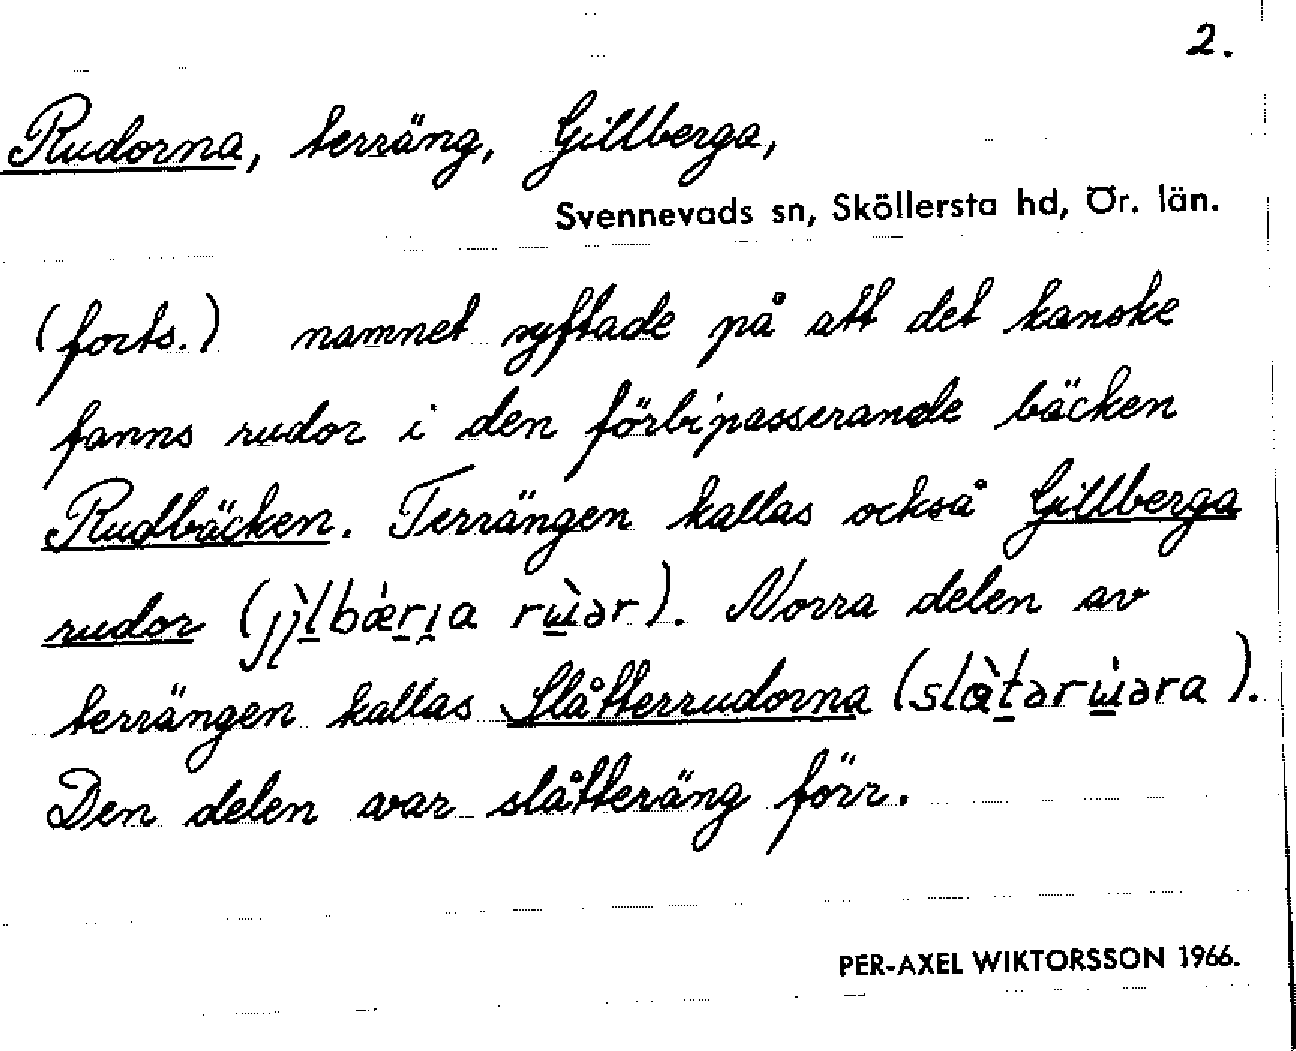 2.
Rudorna, terräng, Gillberga,
Svennevads sn, Sköllersta hd, Ör. län.
(forts.) namnet syftade på att det kanske
fanns rudor i den förbipasserande bäcken
Rudbäcken. Terrängen kallas också Gillberga
rudor. Norra delen av
terrängen kallas Slåtterrudorna
Den delen var slåtteräng förr.
PER-AXEL WIKTORSSON 1966.